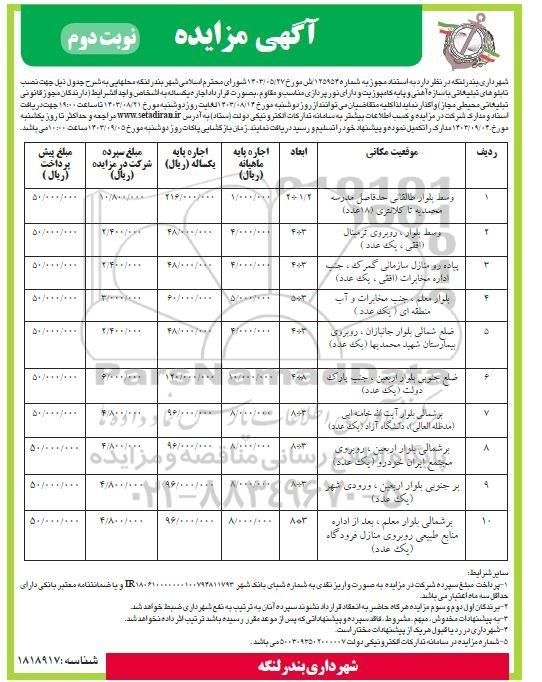 آگهی مزایده
نوبت دوم
شهرداری بندرلنگه در نظر دارد به استناد مجوز به شماره ۱۲۵۹۵۴/ش مورخ ۱۴۰۳/۰۵/۲۷ شورای محترم اسلامی شهر بندرلنگه محلهایی به شرح جدول ذیل جهت نصب
تابلوهای تبلیغاتی با سازه آهنی و پایه کامپوزیت و دارای نورپردازی مناسب و مقاوم، بصورت قرارداد اجاره یکساله به اشخاص واجد الشرایط (دارندگان مجوز قانونی
تبلیغاتی محیطی مجاز) واگذار نماید لذا کلیه متقاضیان می توانند از روز دوشنبه مورخ ۱۴۰۳/۰۸/۱۴ لغایت روز دوشنبه مورخ ۱۴۰۳/۰۸/۲۱ تا ساعت ۱۹:۰۰ جهت دریافت
اسناد و مدارک شرکت در مزایده و کسب اطلاعات بیشتر به سامانه تدارکات الکترونیکی دولت (ستاد) به آدرس www.setadiran.ir مراجعه و حداکثر تا روز یکشنبه
مورخ ۱۴۰۳/۰۹/۰۴ مدارک را تکمیل نموده و پیشنهاد خود را تسلیم و رسید دریافت نمایند. زمان بازگشایی پاکات روز دوشنبه مورخ ۱۴۰۳/۰۹/۰۵ ساعت ۱۰:۰۰ می باشد.
ردیف موقعیت مکانی ابعاد اجاره پایه ماهیانه (ریال) اجاره پایه یکساله (ریال) مبلغ سپرده شرکت در مزایده (ریال) مبلغ پیش پرداخت (ریال)
۱ وسط بلوار طالقانی حدفاصل مدرسه محمدیه تا کلانتری (۱۸عدد) ۱/۲*۲ ۱/۰۰۰/۰۰۰ ۲۱۶/۰۰۰/۰۰۰ ۱۰/۸۰۰/۰۰۰ ۵۰/۰۰۰/۰۰۰
۲ وسط بلوار ، روبروی ترمینال (افقی ، یک عدد ) ۳*۴ ۴/۰۰۰/۰۰۰ ۴۸/۰۰۰/۰۰۰ ۲/۴۰۰/۰۰۰ ۵۰/۰۰۰/۰۰۰
۳ پیاده رو منازل سازمانی گمرک ، جنب اداره مخابرات (افقی ، یک عدد) ۳*۴ ۴/۰۰۰/۰۰۰ ۴۸/۰۰۰/۰۰۰ ۲/۴۰۰/۰۰۰ ۵۰/۰۰۰/۰۰۰
۴ بلوار معلم ، جنب مخابرات و آب منطقه ای ( یک عدد ) ۳*۵ ۵/۰۰۰/۰۰۰ ۶۰/۰۰۰/۰۰۰ ۳/۰۰۰/۰۰۰ ۵۰/۰۰۰/۰۰۰
۵ ضلع شمالی بلوار جانبازان ، روبروی بیمارستان شهید محمدیها (یک عدد) ۳*۴ ۴/۰۰۰/۰۰۰ ۴۸/۰۰۰/۰۰۰ ۲/۴۰۰/۰۰۰ ۵۰/۰۰۰/۰۰۰
۶ ضلع جنوبی بلوار اربعین ، جنب پارک دولت (یک عدد) ۸*۴ ۱۰/۰۰۰/۰۰۰ ۱۲۰/۰۰۰/۰۰۰ ۶/۰۰۰/۰۰۰ ۵۰/۰۰۰/۰۰۰
۷ برشمالی بلوار آیت الله خامنه ایی (مدظله العالی)، دانشگاه آزاد (یک عدد) ۳*۸ ۸/۰۰۰/۰۰۰ ۹۶/۰۰۰/۰۰۰ ۴/۸۰۰/۰۰۰ ۵۰/۰۰۰/۰۰۰
۸ برشمالی بلوار اربعین ، روبروی مجتمع ایران خودرو (یک عدد) ۳*۸ ۸/۰۰۰/۰۰۰ ۹۶/۰۰۰/۰۰۰ ۴/۸۰۰/۰۰۰ ۵۰/۰۰۰/۰۰۰
۹ بر جنوبی بلوار اربعین ، ورودی شهر (یک عدد) ۳*۸ ۸/۰۰۰/۰۰۰ ۹۶/۰۰۰/۰۰۰ ۴/۸۰۰/۰۰۰ ۵۰/۰۰۰/۰۰۰
۱۰ برشمالی بلوار معلم ، بعد از اداره منابع طبیعی روبروی منازل فرودگاه (یک عدد) ۳*۸ ۸/۰۰۰/۰۰۰ ۹۶/۰۰۰/۰۰۰ ۴/۸۰۰/۰۰۰ ۵۰/۰۰۰/۰۰۰
سایر شرایط:
۱-پرداخت مبلغ سپرده شرکت در مزایده به صورت واریز نقدی به شماره شبای بانک شهر و یا ضمانتنامه معتبر بانکی دارای
حداقل سه ماه اعتبار می باشد.
۲-برندگان اول دوم و سوم مزایده هرگاه حاضر به انعقاد قرارداد نشوند سپرده آنان به ترتیب به نفع شهرداری ضبط خواهد شد.
۳-به پیشنهادات مخدوش، مبهم، مشروط، فاقد سپرده و پیشنهاداتی که پس از موعد مقرر رسیده باشد ترتیب اثر داده نخواهد شد.
۴-شهرداری در رد یا قبول هریک از پیشنهادات مختار است.
۵-شماره مزایده در سامانه تدارکات الکترونیکی دولت ۵۰۰۳۰۹۳۵۰۲۰۰۰۰۰۷ می باشد.
شهرداری بندرلنگه
شناسه: ۱۸۱۸۹۱۷
ParsNamadData
پایگاه اطلاع رسانی مناقصه و مزایده
۰۲۱-۸۸۳۴۹۶۷۰-۵